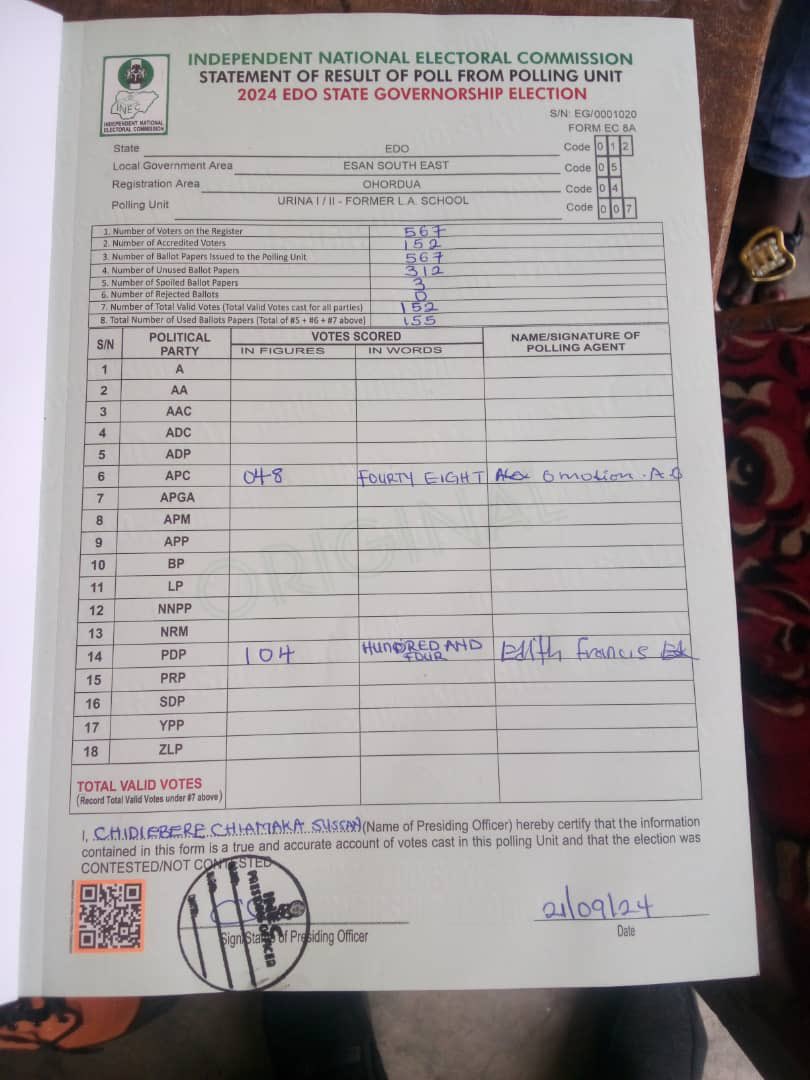 INDEPENDENT NATIONAL ELECTORAL COMMISSION
STATEMENT OF RESULT OF POLL FROM POLLING UNIT
2024 EDO STATE GOVERNORSHIP ELECTION
INEC
INDEPENDENT NATIONAL
ELECTORAL COMMISSION
S/N: EG/0001020
FORM EC 8A
State EDO Code 0 1 2
Local Government Area ESAN SOUTH EAST Code 0 5
Registration Area OHORDUA Code 0 4
Polling Unit URINA I / II - FORMER L.A. SCHOOL Code 0 0 7
1. Number of Voters on the Register 567
2. Number of Accredited Voters 152
3. Number of Ballot Papers Issued to the Polling Unit 567
4. Number of Unused Ballot Papers 312
5. Number of Spoiled Ballot Papers 3
6. Number of Rejected Ballots 0
7. Number of Total Valid Votes (Total Valid Votes cast for all parties) 152
8. Total Number of Used Ballots Papers (Total of #5 + #6 + #7 above) 155
S/N POLITICAL PARTY VOTES SCORED NAME/SIGNATURE OF POLLING AGENT
IN FIGURES IN WORDS
1 A
2 AA
3 AAC
4 ADC
5 ADP
6 APC 048 FOURTY EIGHT Alex Omotion .A
7 APGA
8 APM
9 APP
10 BP
11 LP
12 NNPP
13 NRM
14 PDP 104 HUNDRED AND FOUR Edith Francis
15 PRP
16 SDP
17 YPP
18 ZLP
ORIGINAL
TOTAL VALID VOTES
(Record Total Valid Votes under #7 above)
I, CHIDIEBERE CHIAMAKA SUSSAN (Name of Presiding Officer) hereby certify that the information
contained in this form is a true and accurate account of votes cast in this polling Unit and that the election was
CONTESTED/NOT CONTESTED
INEC
PRESIDING OFFICER
21/09/24
Sign/Stamp of Presiding Officer
Date